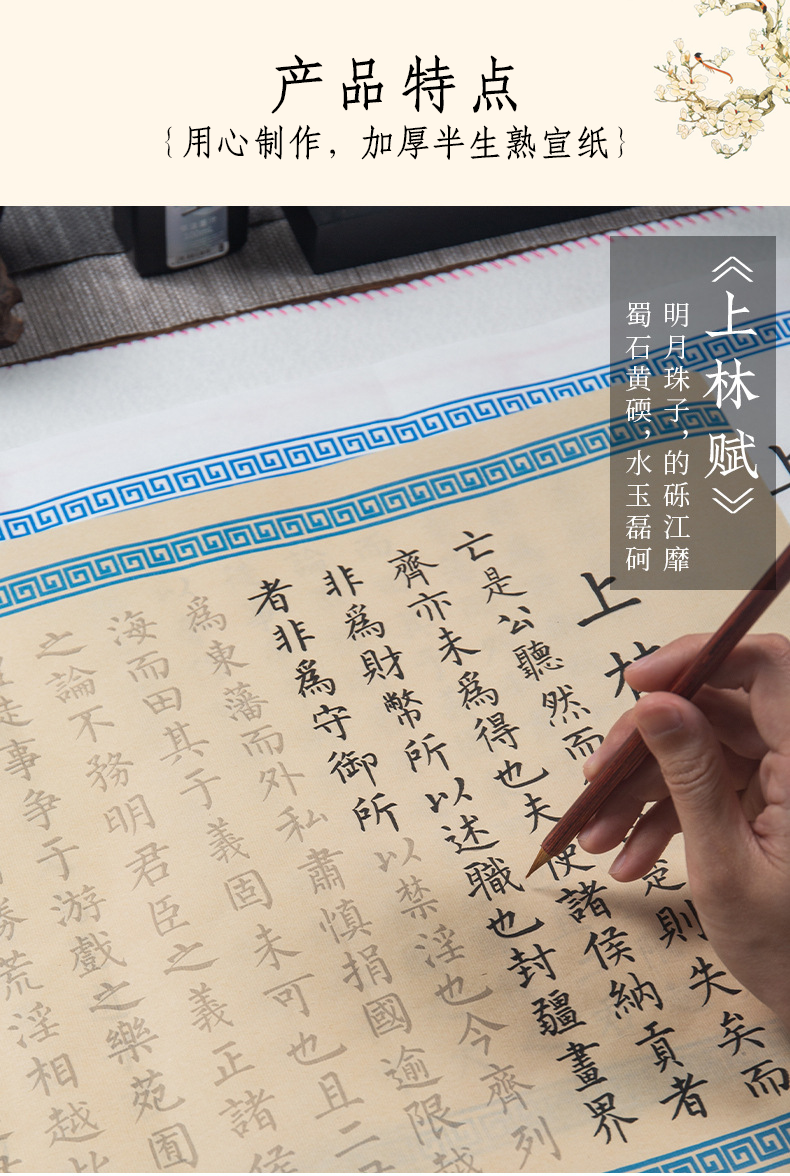 产品特点
{用心制作，加厚半生熟宣纸}
《上林赋》
明月珠子，的砾江靡
蜀石黄碝，水玉磊砢
上林
亡是公聽然而
則失矣而
齊亦未爲得也夫使諸侯納貢者
非爲財幣所以述職也封疆畫界
者非爲守御所以禁淫也今齊列
爲東藩而外私肅慎捐國逾限越
海而田其于義固未可也且二
之論不務明君臣之義正諸侯
徒事争于游戲之樂苑囿
勝荒淫相越